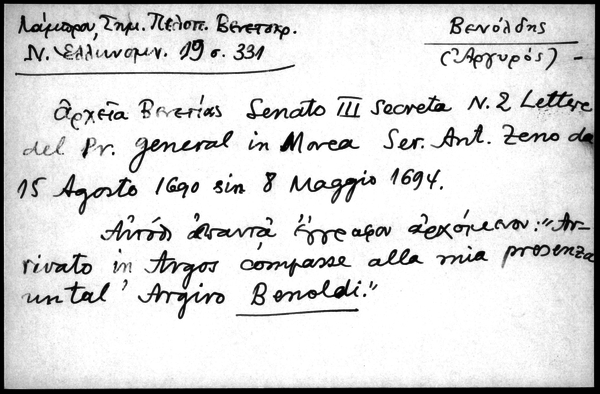 Λάμπρου, Σημ. Πελοπ. Βενετοκρ.
Ν. Ἑλληνομν. 19 σ. 331
Βενόλδης
(Ἀργυρός) -
ἀρχεῖα Βενετίας Senato III Secreta N. 2 Lettere
del Pr. general in Morea Ser. Ant. Zeno da
15 Agosto 1690 sin 8 Maggio 1694.
Αὐτόθι ἀπαντᾶ ἔγγραφον ἀρχόμενον: "Ar-
rivato in Argos comparse alla mia presenza
un tal Argiro Benoldi."